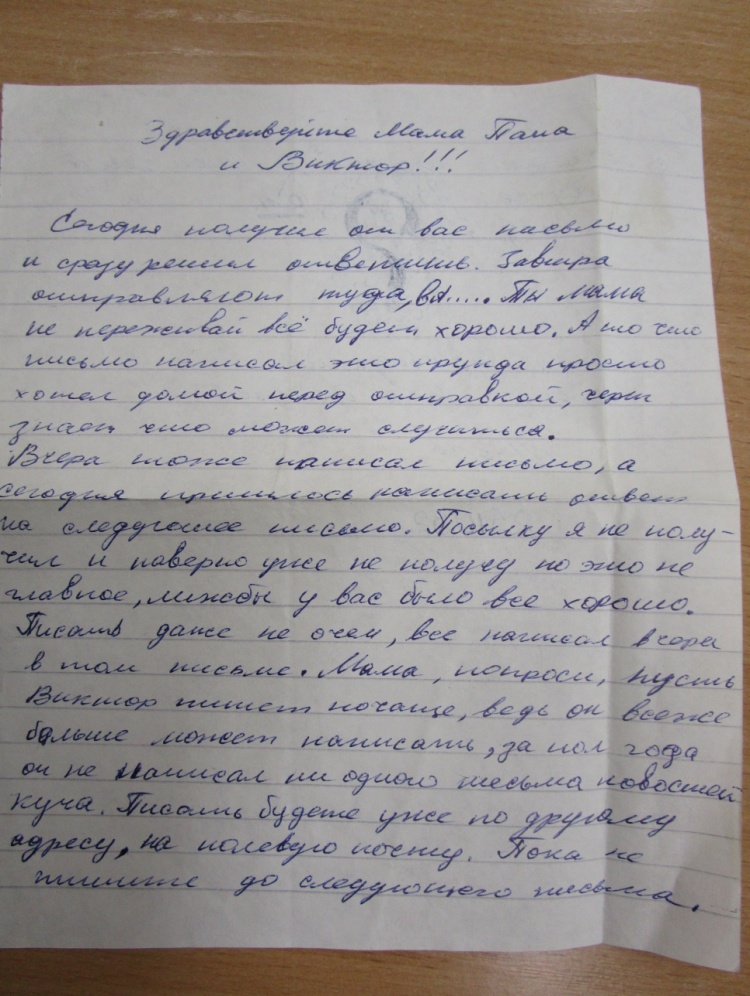 Здравствуйте Мама Папа
и Виктор!!!
Сегодня получил от вас письмо
и сразу решил ответить. Завтра
отправляют туда, в А..... Ты мама
не переживай всё будет хорошо. А то что
письмо написал это ерунда просто
хотел домой перед отправкой, черт
знает что может случиться.
Вчера тоже написал письмо, а
сегодня пришлось написать ответ
на следующее письмо. Посылку я не полу-
чил и наверно уже не получу но это не
главное, лишбы у вас было все хорошо.
Писать даже не очем, все написал вчера
в том письме. Мама, попроси, пусть
Виктор пишет почаще, ведь он всеже
больше может написать, за пол года
он не написал ни одного письма новостей
куча. Писать будете уже по другому
адресу, на полевую почту. Пока не
пишите до следующего письма.